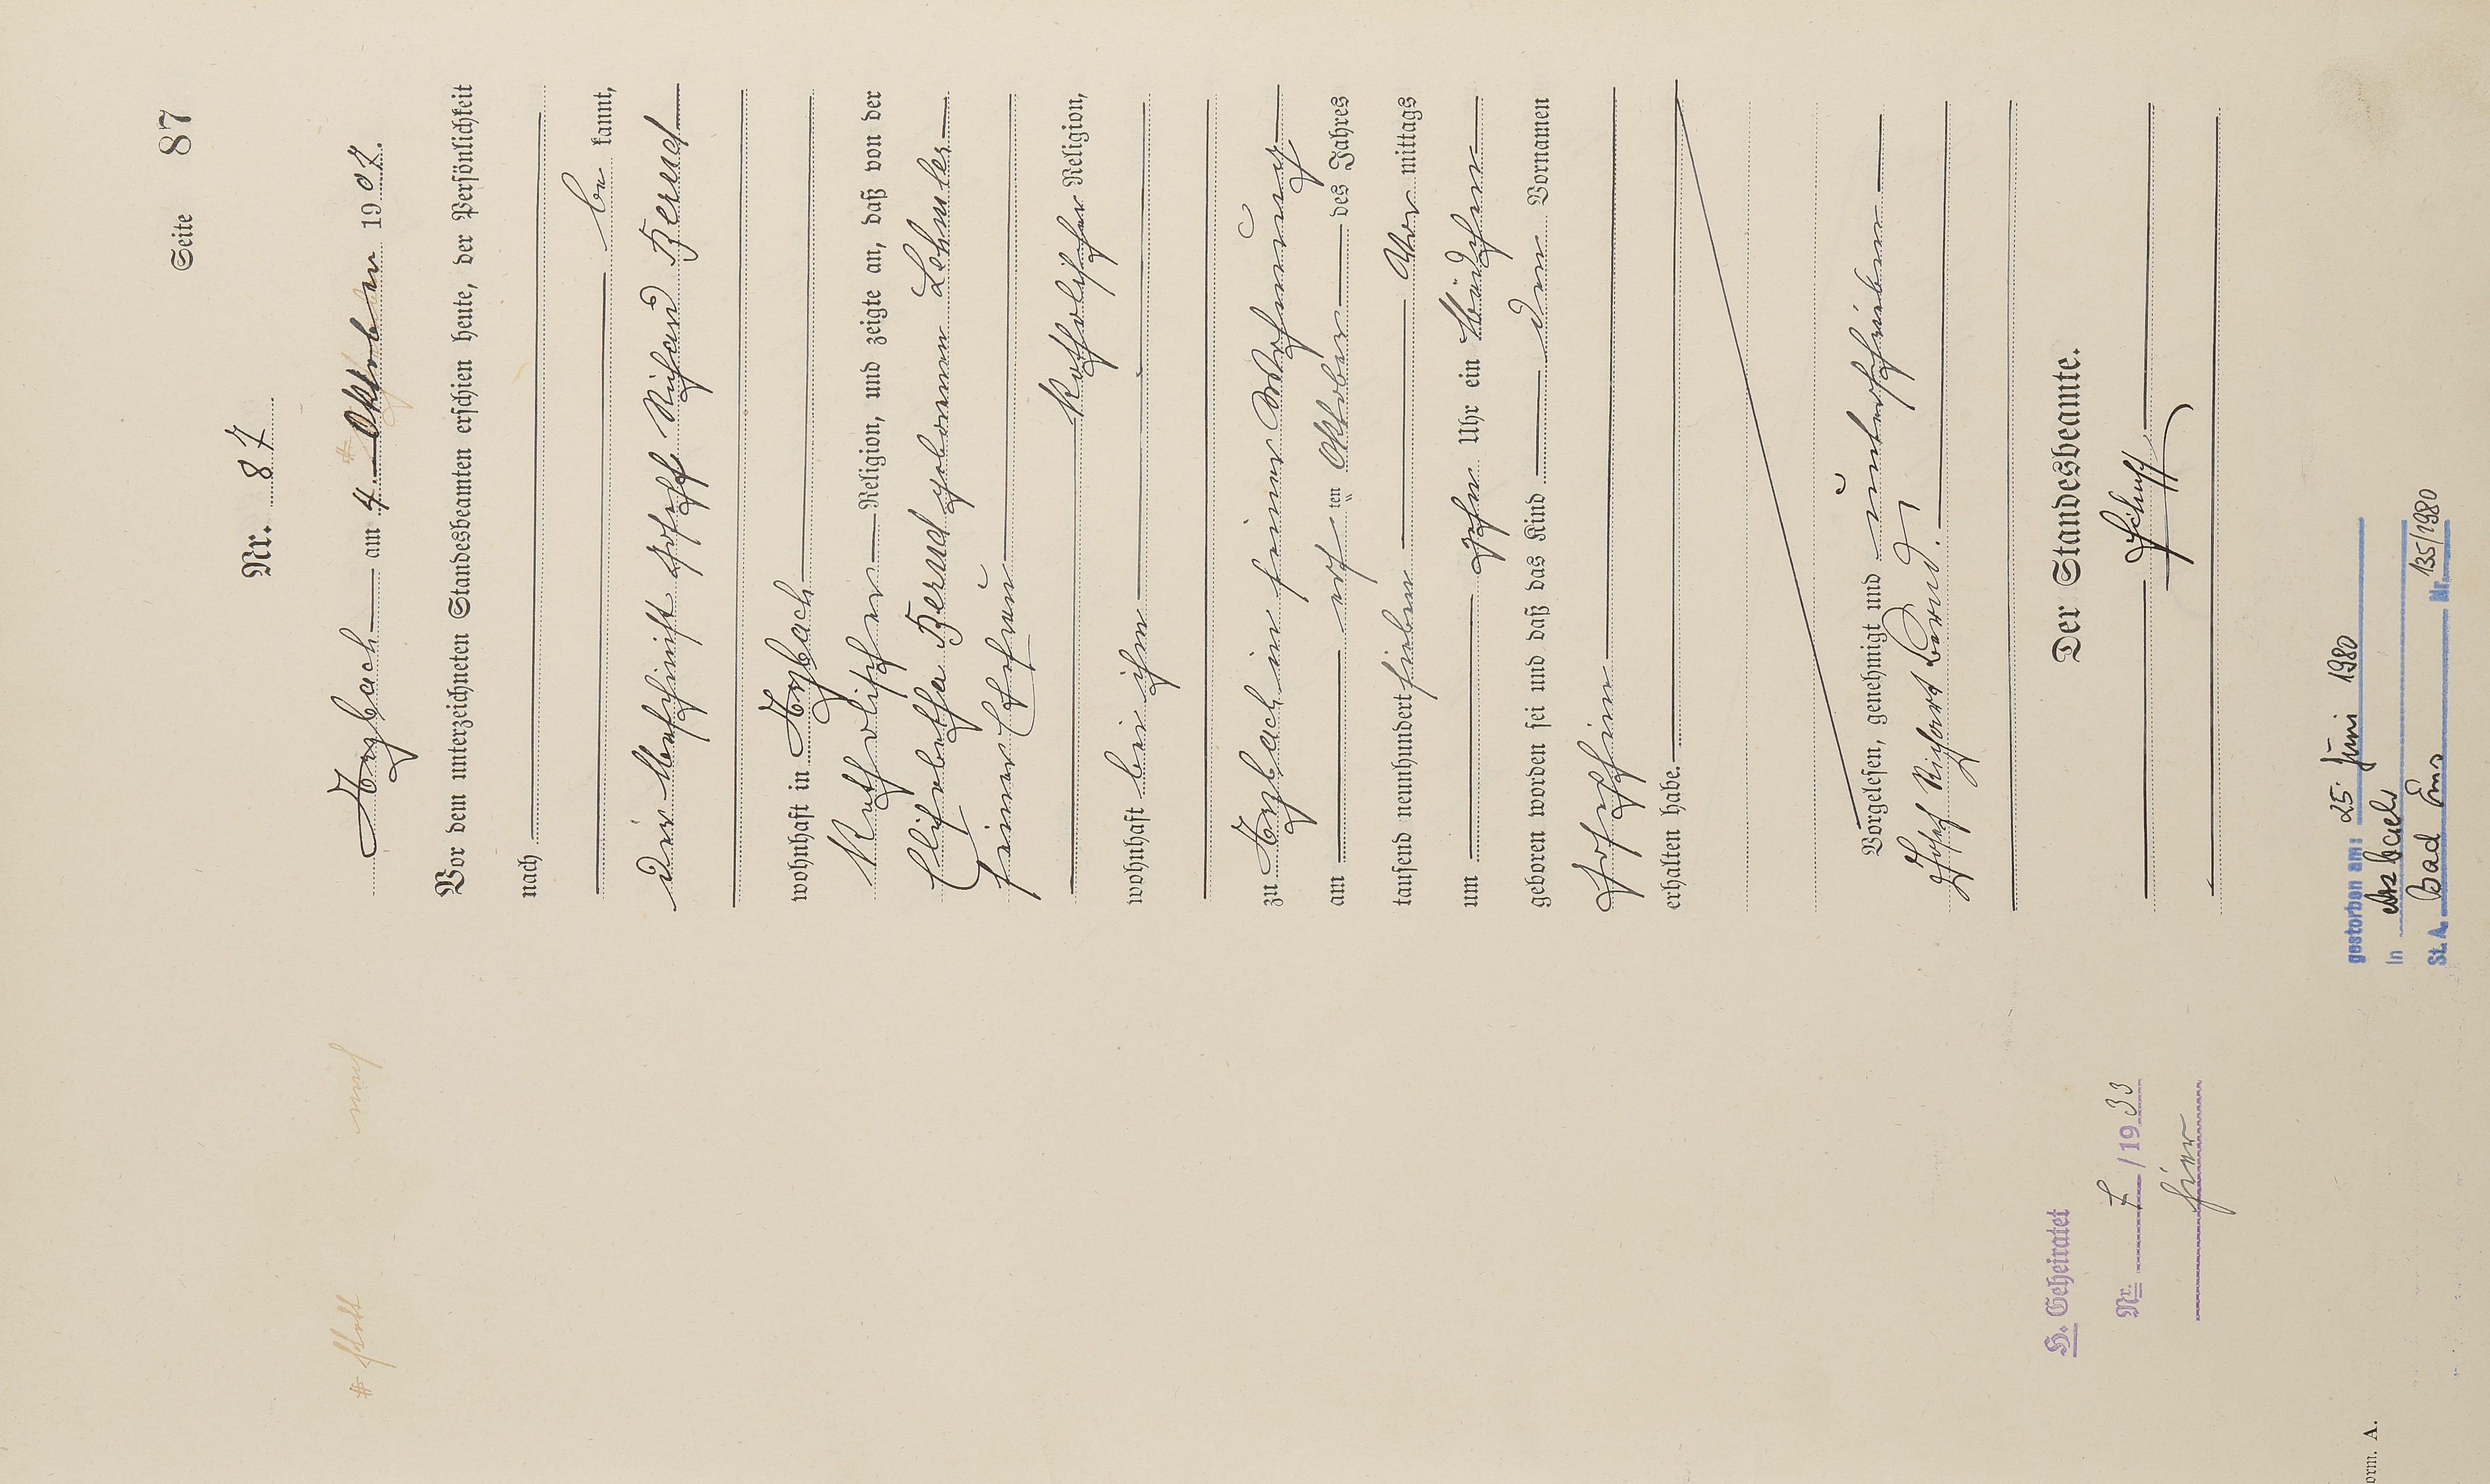 Seite 87
Nr. 87
Arzbach am 4. Oktober 1907.
Vor dem unterzeichneten Standesbeamten erschien heute, der Persönlichkeit
nach
be kannt,
der Maschinist Joseph Richard Bernd
wohnhaft in Arzbach
katholischer Religion, und zeigte an, daß von der
Elisabetha Bernd geborenen
seiner Ehefrau
katholischer Religion,
wohnhaft bei ihm
zu Arzbach in seiner Wohnung
am ten Oktober des Jahres
tausend neunhundert sieben Vor mittags
um zehn Uhr ein Mädchen
geboren worden sei und daß das Kind den Vornamen
Josephine
erhalten habe.
Vorgelesen, genehmigt und unterschrieben
Josef Richard Bernd.
Der Standesbeamte.
H. Geheiratet
Nr. 7/1933
hier
gestorben am: 25. Juni 1980
in Arzbach
St. A. Bad Ems Nr. 135/1980
orm. A.